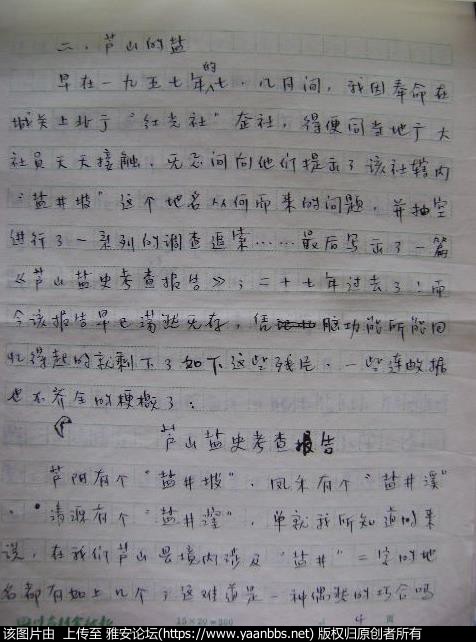 二、芦山的盐
早在一九五七年的七、八月间，我因奉命在
城关上北了"红光社"奎社，得便同当地广大
社员天天接触，无忌间向他们提出了该社辖内
"盐井坡"这个地名从何而来的问题，并抽空
进行了一系列的调查追索……最后写出了一篇
《芦山盐史考查报告》；二十七年过去了！而
今该报告早已荡然无存，信脑功能所能回
忆得起的就剩下了如下这些残片，一些连数据
也不齐全的梗概了：
芦山盐史考查报告
芦阳有个"盐井坡"，凤禾有个"盐井溪"
、清源有个"盐井"，单就我所知道的来
说，在我们芦山县境内涉及"盐井"二字的地
名都有如上几个了这难道是一种偶然的巧合吗
15×20=300
4 页
该图片由 上传至 雅安论坛(https://www.yaanbbs.net) 版权归原创者所有